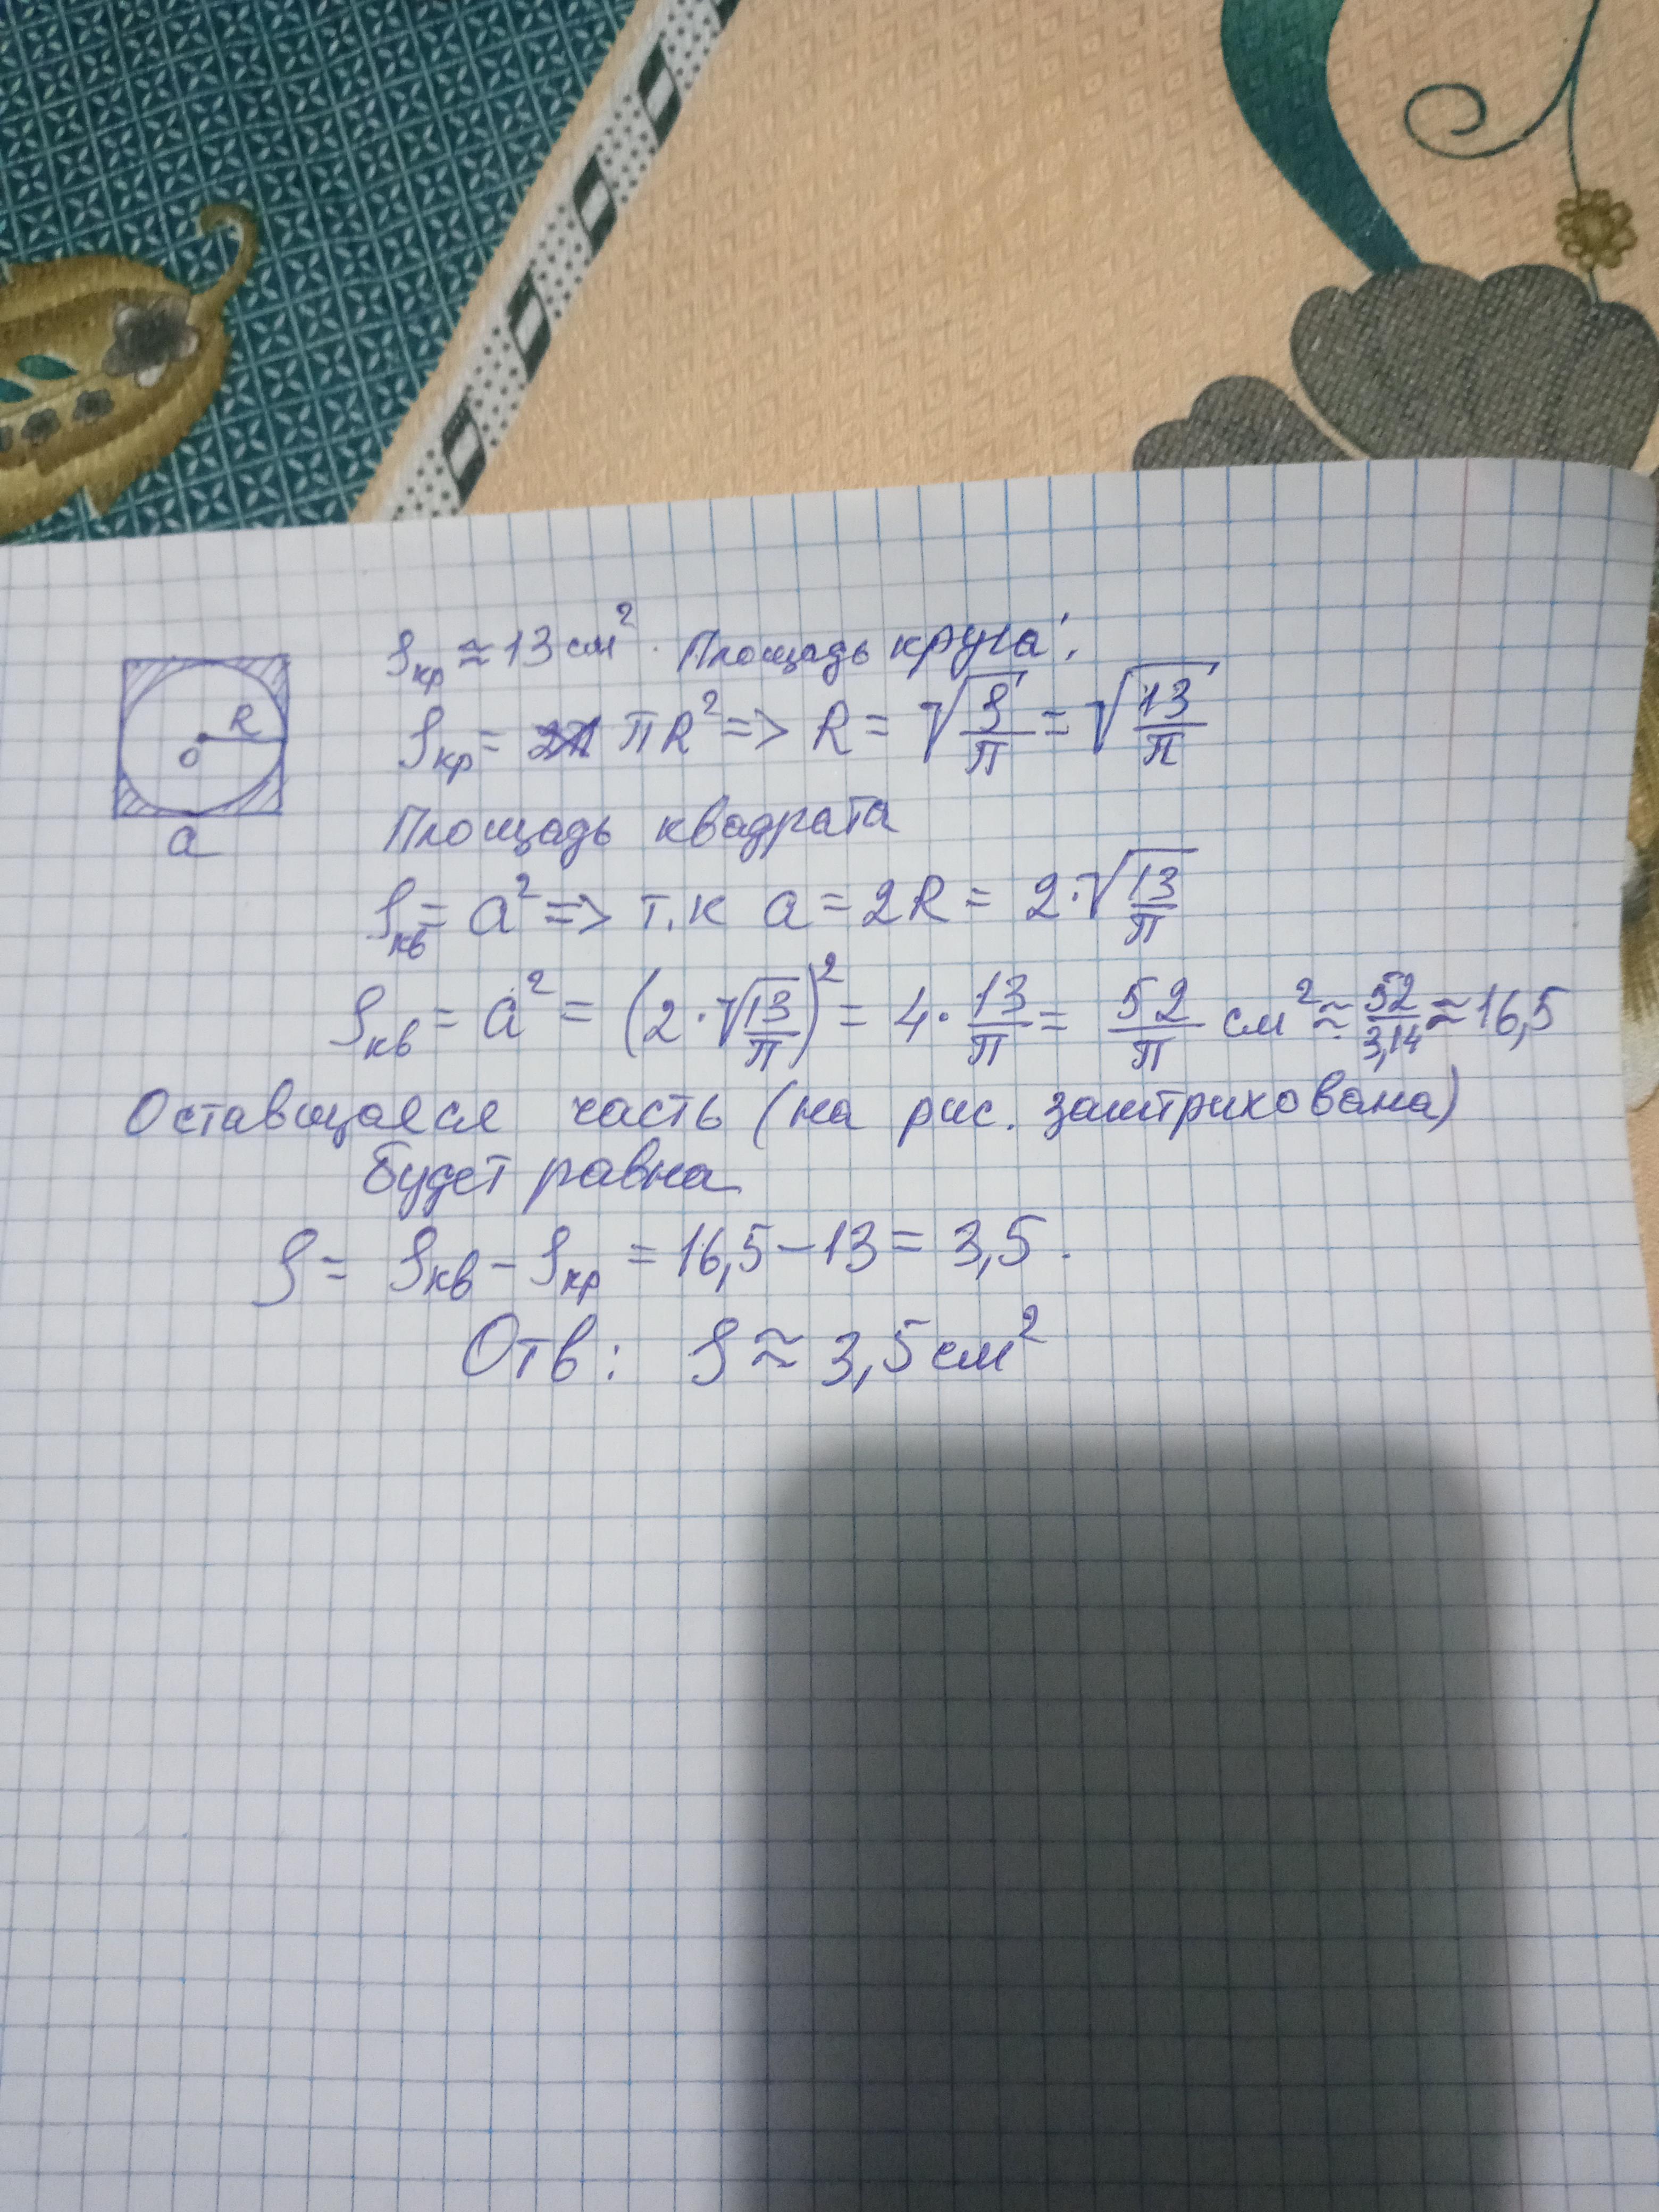 Sкр ≈ 13 см². Площадь круга:
R
O
a
Sкр = πR² => R = √(S/π) = √(13/π)
Площадь квадрата
Sкв = a² => т.к a = 2R = 2·√(13/π)
Sкв = a² = (2·√(13/π))² = 4·13/π = 52/π см² ≈ 52/3,14 ≈ 16,5
Оставщаяся часть (на рис. заштрихована)
будет равна
S = Sкв - Sкр = 16,5 - 13 = 3,5.
Отв: S ≈ 3,5 см²